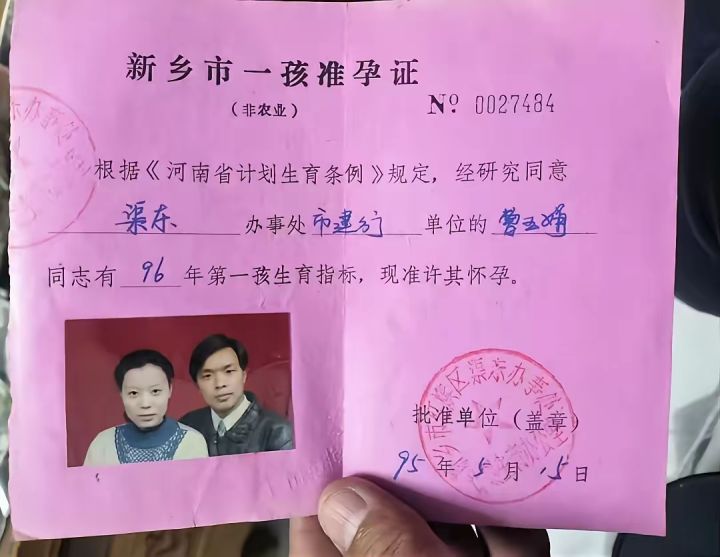 新乡市一孩准孕证
(非农业)
Nº 0027484
根据《河南省计划生育条例》规定，经研究同意
渠东 办事处 市建行 单位的 曹玉娟
同志有 96 年第一孩生育指标，现准许其怀孕。
渠东办事处
批准单位（盖章）
95 年 5 月 15 日